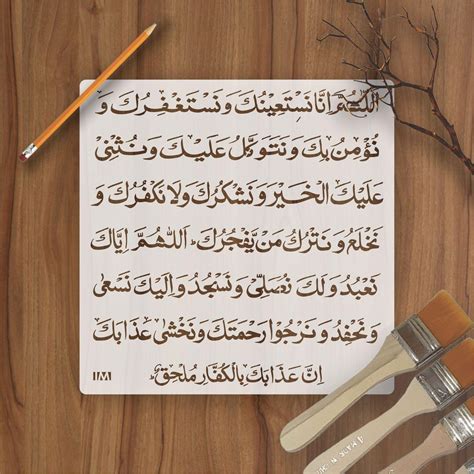 اَللّٰهُمَّ اِنَّا نَسْتَعِيْنُكَ وَ نَسْتَغْفِرُكَ وَ
نُؤْمِنُ بِكَ وَ نَتَوَكَّلُ عَلَيْكَ وَ نُثْنِيْ
عَلَيْكَ الْخَيْرَ وَ نَشْكُرُكَ وَلَا نَكْفُرُكَ وَ
نَخْلَعُ وَ نَتْرُكُ مَنْ يَّفْجُرُكَ اَللّٰهُمَّ اِيَّاكَ
نَعْبُدُ وَ لَكَ نُصَلِّيْ وَ نَسْجُدُ وَ اِلَيْكَ نَسْعٰى
وَ نَحْفِدُ وَ نَرْجُوْا رَحْمَتَكَ وَ نَخْشٰى عَذَابَكَ
اِنَّ عَذَابَكَ بِالْكُفَّارِ مُلْحِقٌ